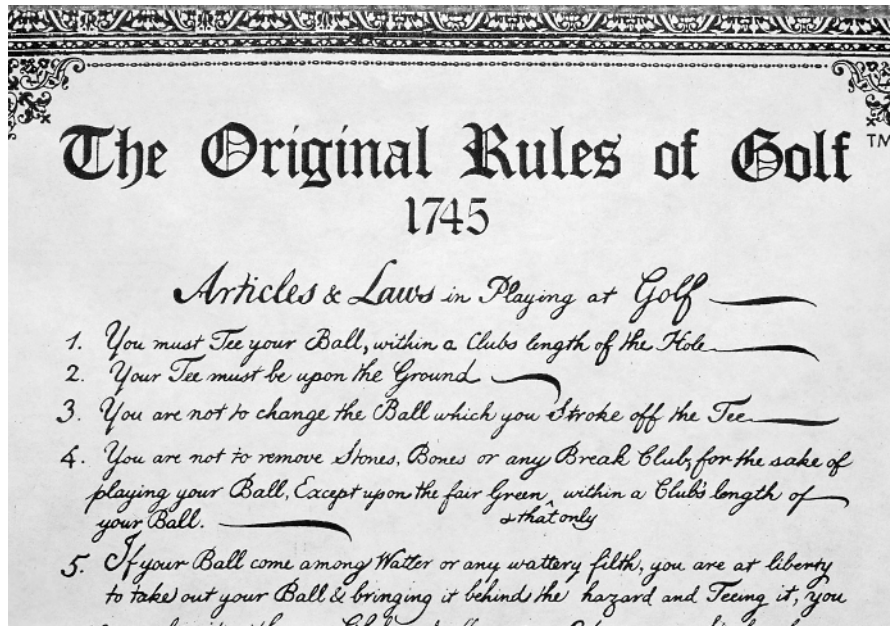 The Original Rules of Golf TM
1745
Articles & Laws in Playing at Golf
1. You must Tee your Ball, within a Clubs length of the Hole
2. Your Tee must be upon the Ground
3. You are not to change the Ball which you Stroke off the Tee
4. You are not to remove Stones, Bones or any Break Club, for the sake of
playing your Ball, Except upon the fair Green ^ within a Club's length of
your Ball. & that only
5. If your Ball come among Watter or any wattery filth, you are at liberty
to take out your Ball & bringing it behind the hazard and Teeing it, you